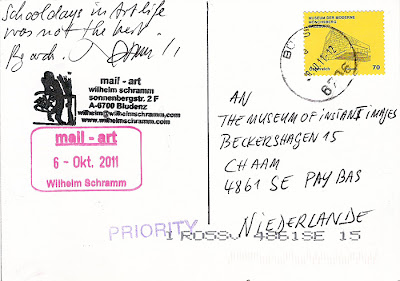 Schooldays in Art life
was not the best.
mail - art
wilhelm schramm
sonnenbergstr. 2 F
A-6700 Bludenz
wilhelm@wilhelmschramm.com
www.wilhelmschramm.com
mail - art
6 - Okt. 2011
Wilhelm Schramm
MUSEUM DER MODERNE
MÖNCHSBERG
Österreich
70
AN
THE MUSEUM OF INSTANT IMAGES
BECKERSHAGEN 15
CHAAM
4861 SE PAY BAS
NIEDERLANDE
PRIORITY
4861SE 15